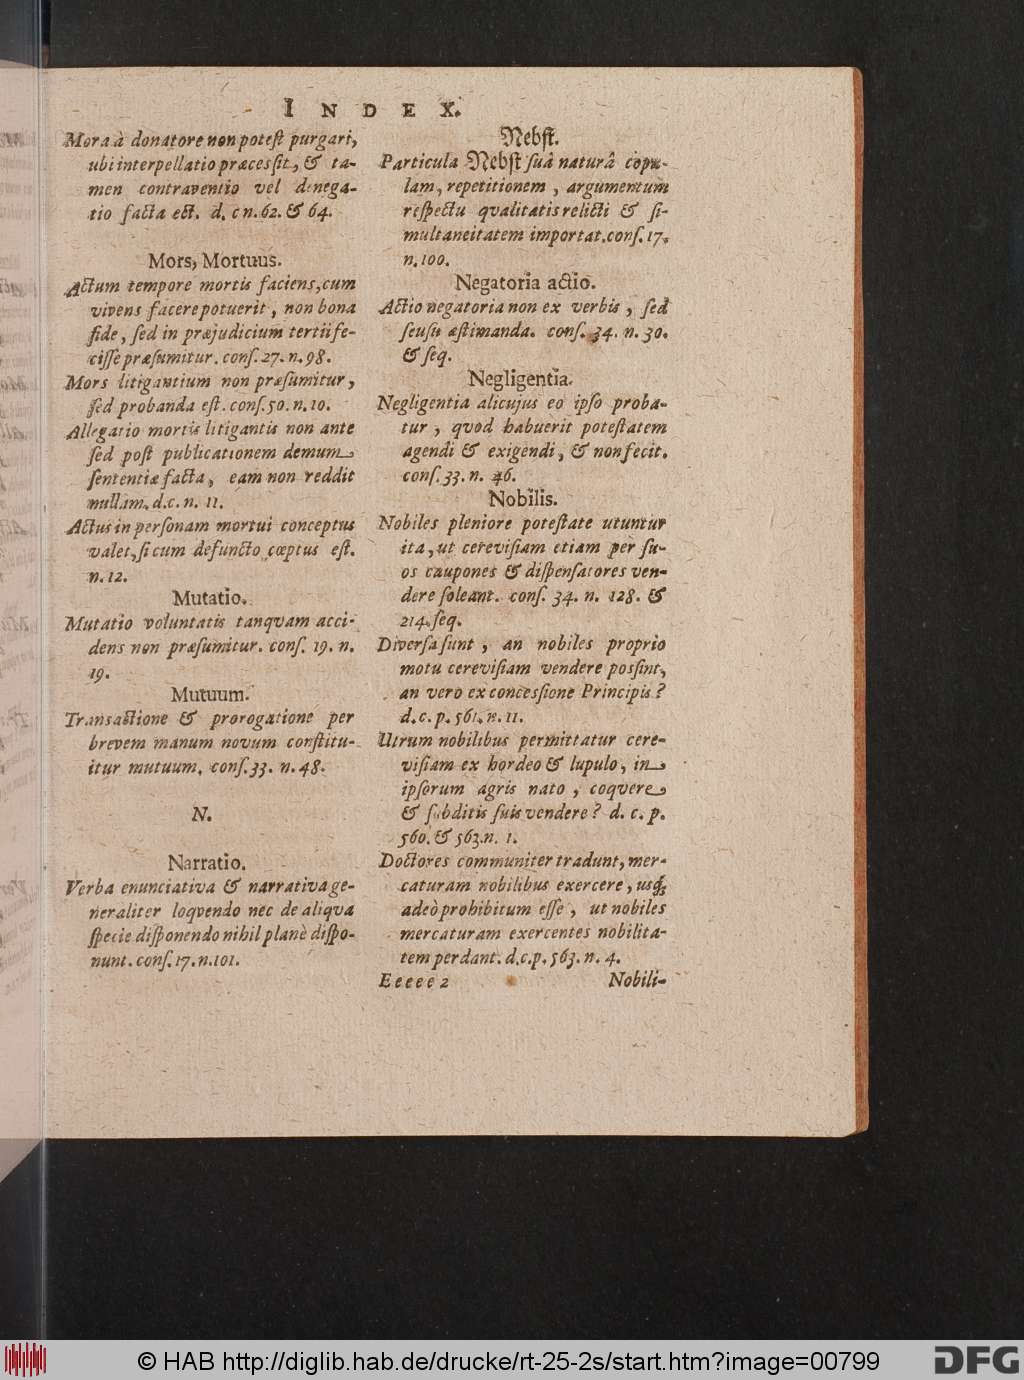 INDEX.
Mora à donatore non potest purgari,
ubi interpellatio præcessit, & ta-
men contraventio vel denega-
tio facta est. d. c n. 62. & 64.
Mors, Mortuus.
Actum tempore mortis faciens, cum
vivens facere potuerit, non bona
fide, sed in præjudicium tertii fe-
cisse præsumitur. cons. 27. n. 98.
Mors litigantium non præsumitur,
sed probanda est. cons. 50. n. 10.
Allegatio mortis litigantis non ante
sed post publicationem demum
sententiæ facta, eam non reddit
nullam. d. c. n. 11.
Actus in personam mortui conceptus
valet, si cum defuncto cœptus est.
n. 12.
Mutatio.
Mutatio voluntatis tanquam acci-
dens non præsumitur. cons. 19. n.
19.
Mutuum.
Transactione & prorogatione per
brevem manum novum constitu-
itur mutuum. cons. 33. n. 48.
N.
Narratio.
Verba enunciativa & narrativa ge-
neraliter loqvendo nec de aliqva
specie disponendo nihil planè dispo-
nunt. cons. 17. n. 101.
Nebst.
Particula Nebst suâ naturâ copu-
lam, repetitionem, argumentum
respectu qvalitatis relicti & si-
multaneitatem importat. cons. 17.
n. 100.
Negatoria actio.
Actio negatoria non ex verbis, sed
seusu æstimanda. cons. 34. n. 30.
& seq.
Negligentia.
Negligentia alicujus eo ipso proba-
tur, qvod habuerit potestatem
agendi & exigendi, & non fecit.
cons. 33. n. 46.
Nobilis.
Nobiles pleniore potestate utuntur
ita, ut cerevisiam etiam per su-
os caupones & dispensatores ven-
dere soleant. cons. 34. n. 128. &
214. seq.
Diversa sunt, an nobiles proprio
motu cerevisiam vendere possint,
an vero ex concessione Principis?
d. c. p. 561. n. 11.
Utrum nobilibus permittatur cere-
visiam ex hordeo & lupulo, in
ipsorum agris nato, coqvere
& subditis suis vendere? d. c. p.
560. & 563. n. 1.
Doctores communiter tradunt, mer-
caturam nobilibus exercere, usq;
adeò prohibitum esse, ut nobiles
mercaturam exercentes nobilita-
tem perdant. d. c. p. 563. n. 4.
Eeeee 2 Nobili-
© HAB http://diglib.hab.de/drucke/rt-25-2s/start.htm?image=00799
DFG